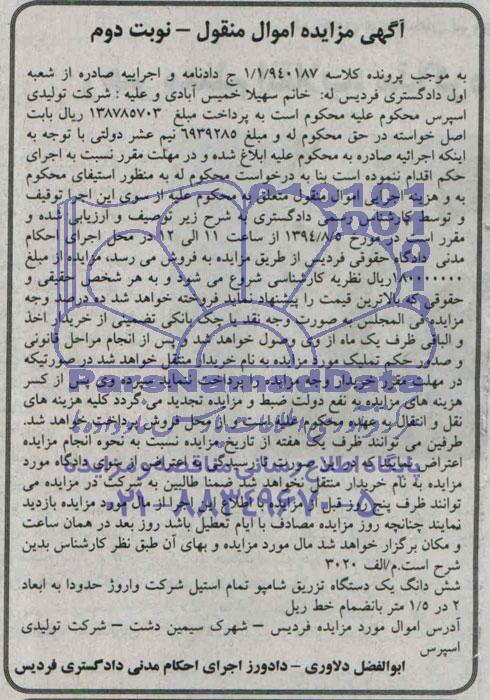 آگهی مزایده اموال منقول – نوبت دوم
به موجب پرونده کلاسه ۱/۱/۹۴۰۱۸۷ ج دادنامه و اجراییه صادره از شعبه
اول دادگستری فردیس له: خانم سهیلا خمیس آبادی و علیه : شرکت تولیدی
اسپرس محکوم علیه محکوم است به پرداخت مبلغ ۱۳۸۷۸۵۷۰۳ ریال بابت
اصل خواسته در حق محکوم له و مبلغ ۶۹۳۹۲۸۵ نیم عشر دولتی با توجه به
اینکه اجرائیه صادره به محکوم علیه ابلاغ شده و در مهلت مقرر نسبت به اجرای
حکم اقدام ننموده است بنا به درخواست محکوم له به منظور استیفای محکوم
به و هزینه اجرایی اموال منقول متعلق به محکوم علیه از سوی این اجرا توقیف
و توسط کارشناس رسمی دادگستری به شرح زیر توصیف و ارزیابی شده و
مقرر است در مورخ ۱۳۹۴/۸/۵ از ساعت ۱۱ الی ۱۲ در محل اجرای احکام
مدنی دادگاه حقوقی فردیس از طریق مزایده به فروش می رسد، مزایده از مبلغ
ریال نظریه کارشناسی شروع می شود و به هر شخص حقیقی و
حقوقی که بالاترین قیمت را پیشنهاد نماید فروخته خواهد شد ده درصد وجه
مزایده فی المجلس به صورت وجه نقد یا چک بانکی تضمینی از خریدار اخذ
و الباقی ظرف یک ماه از وی وصول خواهد شد و پس از انجام مراحل قانونی
و صدور حکم تملیک مورد مزایده به نام خریدار منتقل خواهد شد در صورتیکه
در مهلت مقرر خریدار وجه مزایده را پرداخت ننماید سپرده وی پس از کسر
هزینه های مزایده به نفع دولت ضبط و مزایده تجدید می گردد کلیه هزینه های
نقل و انتقال به عهده محکوم علیه است و از محل فروش پرداخت خواهد شد.
طرفین می توانند ظرف یک هفته از تاریخ مزایده نسبت به نحوه انجام مزایده
اعتراض نمایند که در این صورت تا رسیدگی به اعتراض از سوی دادگاه مورد
مزایده به نام خریدار منتقل نخواهد شد ضمنا طالبین به شرکت در مزایده می
توانند ظرف پنج روز قبل از مزایده با اطلاع این اجرا از مال مورد مزایده بازدید
نمایند چنانچه روز مزایده مصادف با ایام تعطیل باشد روز بعد در همان ساعت
و مکان برگزار خواهد شد مال مورد مزایده و بهای آن طبق نظر کارشناس بدین
شرح است.م/الف ۳۰۲۰
شش دانگ یک دستگاه تزریق شامپو تمام استیل شرکت واروژ حدودا به ابعاد
۲ در ۱/۵ متر بانضمام خط ریل
آدرس اموال مورد مزایده فردیس – شهرک سیمین دشت – شرکت تولیدی
اسپرس
ابوالفضل دلاوری – دادورز اجرای احکام مدنی دادگستری فردیس
پایگاه اطلاع رسانی مناقصه و مزایده
۰۲۱-۸۸۳۴۹۶۷۰-۵